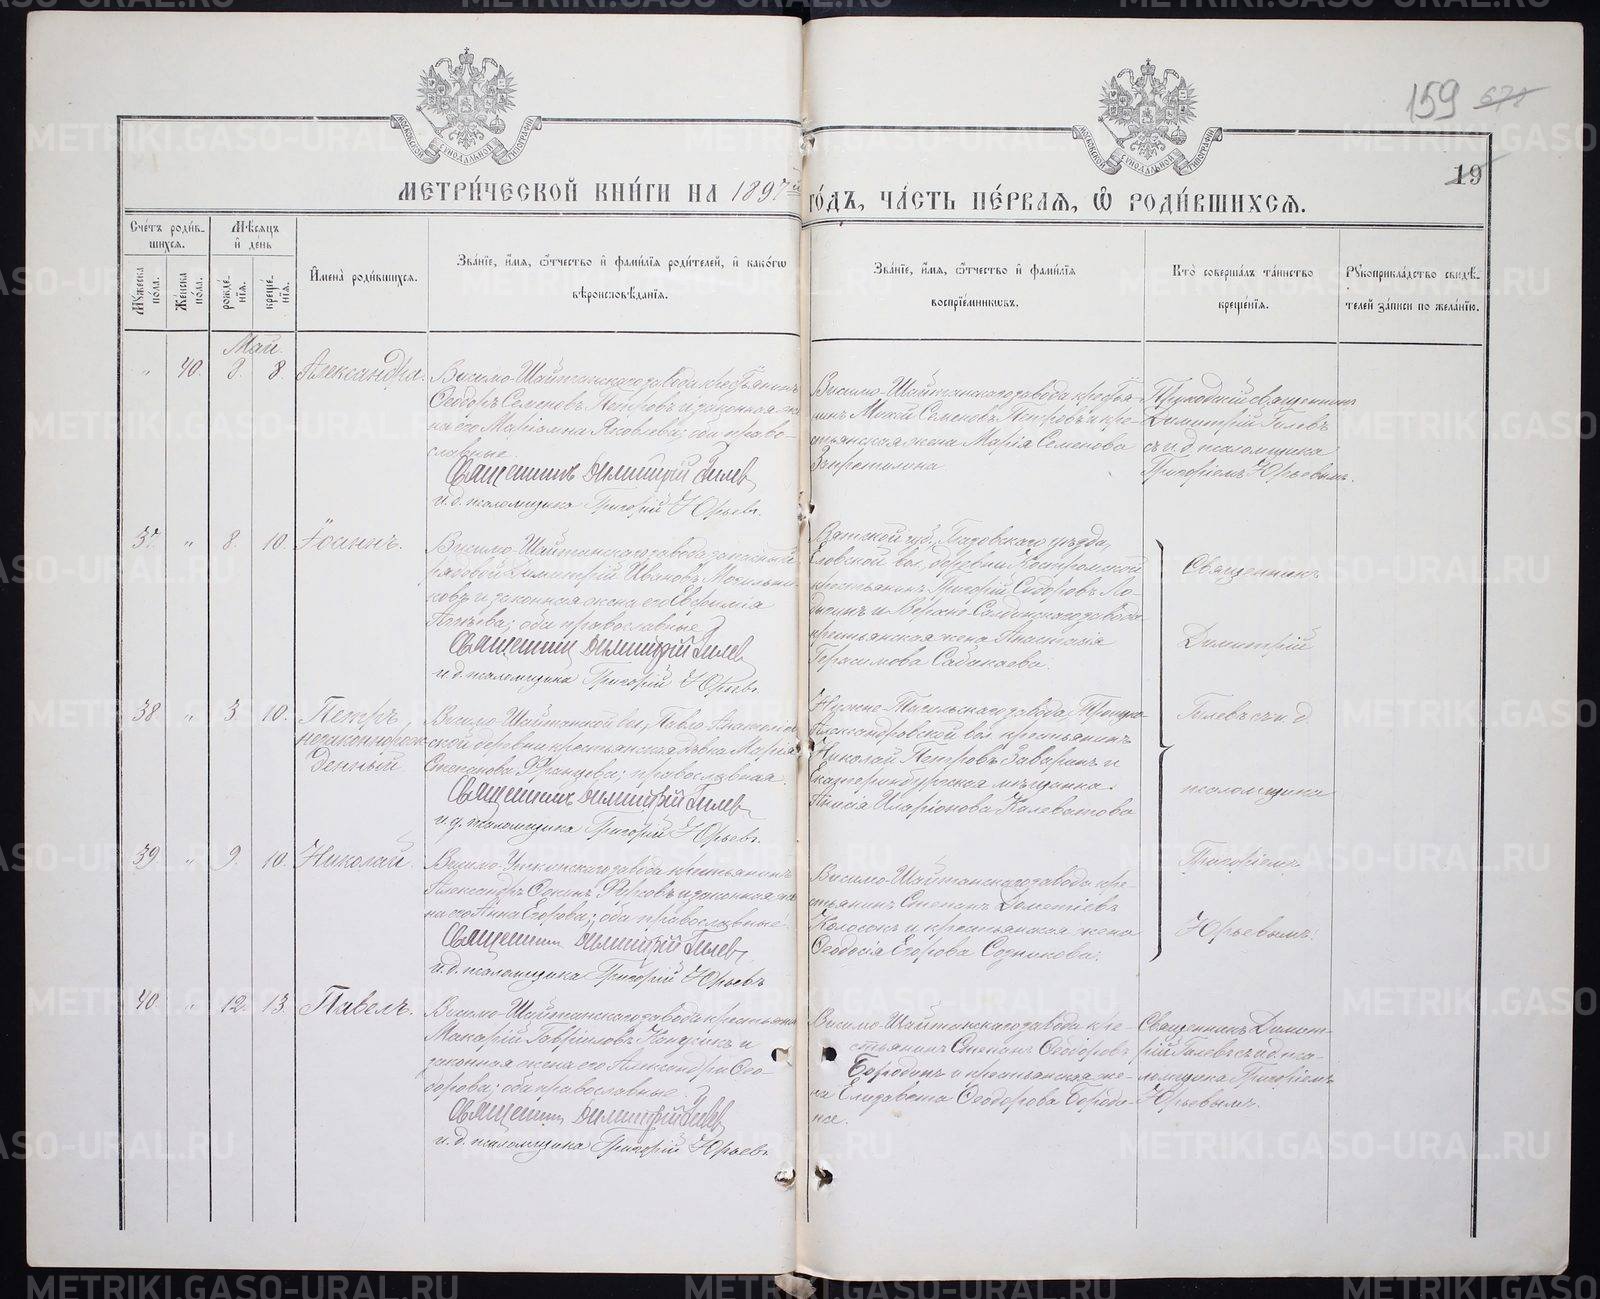 159 678
МОСКОВСКОЙ СѴНОДАЛЬНОЙ ТИПОГРАФІИ
МОСКОВСКОЙ СѴНОДАЛЬНОЙ ТИПОГРАФІИ
19
МЕТРИ́ЧЕСКОЙ КНИ́ГИ НА 1897й ГО́ДЪ, ЧА́СТЬ ПЕ́РВАѦ, Ѡ҆ РОДИ́ВШИХСѦ.
Сче́тъ роди́в-
шихся.
Мѣ́сяцъ
и҆ день
Мꙋ́жеска по́ла.
Же́нска по́ла.
рожде́-нїя.
креще́-нїя.
И҆мена̀ роди́вшихся.
Зва́нїе, и҆́мя, ѻ҆́тчество и҆ фами́лїя роди́телей, и҆ како́гѡ
вѣроисповѣ́данїя.
Зва́нїе, и҆́мя, ѻ҆́тчество и҆ фами́лїя
воспрїе́мникѡвъ.
Кто̀ соверша́лъ та́инство
креще́нїя.
Рꙋкоприкла́дство свидѣ́-
телей за́писи по жела́нїю.
Май.
" 40. 8. Александра.
Висимо-Шайтанскаго завода крестьянинъ
Ѳеодоръ Семеновъ Петровъ и законная же-
на его Маріамна Яковлева; оба право-
славные.
Священникъ Димитрій Гилевъ
и. д. псаломщика Григорій Юрьевъ.
Висимо-Шайтанскаго завода крестья-
нинъ Семеновъ Петровъ и кре-
стьянская жена Марія Семенова
Приходскій священникъ
Димитрій Гилевъ
съ и. д. псаломщика
Григоріемъ Юрьевымъ.
37. " 8. 10. Іоаннъ.
Висимо-Шайтанскаго завода запасный
рядовой Димитрій Ивановъ Мосильни-
ковъ и законная жена его Евфимія
оба православные.
Священникъ Димитрій Гилевъ
и. д. псаломщика Григорій Юрьевъ.
Вятской губ., Глазовскаго уѣзда,
Еловской вол., деревни Костромской
крестьянинъ Григорій Сидоровъ
и Верхне-Салдинскаго завода
крестьянская жена Анастасія
Герасимова Сабакаева.
Священникъ
Димитрій
38 " 3. 10. Петръ,
незаконнорож-
денный
Висимо-Шайтанской вол., Павло-Анатольев-
ской деревни крестьянская дѣвка Марія
Степанова Францева; православная.
Священникъ Димитрій Гилевъ
и. д. псаломщика Григорій Юрьевъ.
Нижне-Тагильскаго завода, Троицко-
Александровской вол. крестьянинъ
Николай Петровъ Заваринъ и
Екатеринбургская мѣщанка
Анисія Иларіонова Калеватова
Гилевъ съ и. д.
псаломщика
39 " 9. 10. Николай.
Висимо-Уткинскаго завода крестьянинъ
Александръ Фирсовъ и законная же-
на его Анна Егорова; оба православные.
Священникъ Димитрій Гилевъ,
и. д. псаломщика Григорій Юрьевъ
Висимо-Шайтанскаго завода кре-
стьянинъ Степанъ Дометіевъ
Колосокъ и крестьянская жена
Ѳеодосія Егорова Созыкова.
Григоріемъ
Юрьевымъ.
40 " 12. 13. Павелъ.
Висимо-Шайтанскаго завода крестьянинъ
Макарій Гавріиловъ Кондюкъ и
законная жена его Александра Ѳео-
дорова; оба православные.
Священникъ Димитрій Гилевъ
и. д. псаломщика Григорій Юрьевъ
Висимо-Шайтанскаго завода кре-
стьянинъ Степанъ Ѳеодоровъ
Бородинъ и крестьянская же-
на Елизавета Ѳеодорова Бороди-
на.
Священникъ Димит-
рій Гилевъ съ и. д. пса-
ломщика Григоріемъ
Юрьевымъ.
METRIKI.GASO-URAL.RU